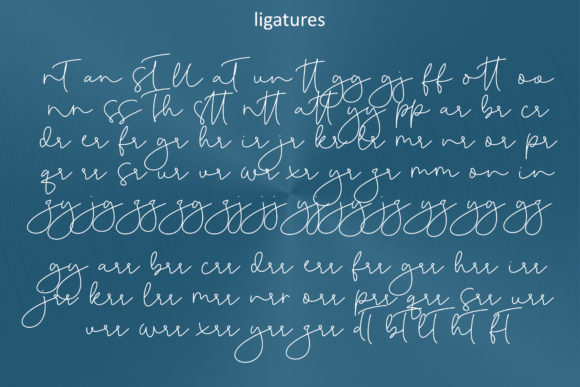 ligatures
nt an st ll at un tt gg gj ff ott oo
nn ss th stt ntt att yy pp ar br cr
dr er fr gr hr ir jr kr lr mr nr or pr
qr rr sr ur vr wr xr yr zr mm on in
gy arr brr crr drr err frr grr hrr irr
jrr krr lrr mrr nrr orr prr qrr srr urr
vrr wrr xrr yrr zrr dt bt lt ht ft